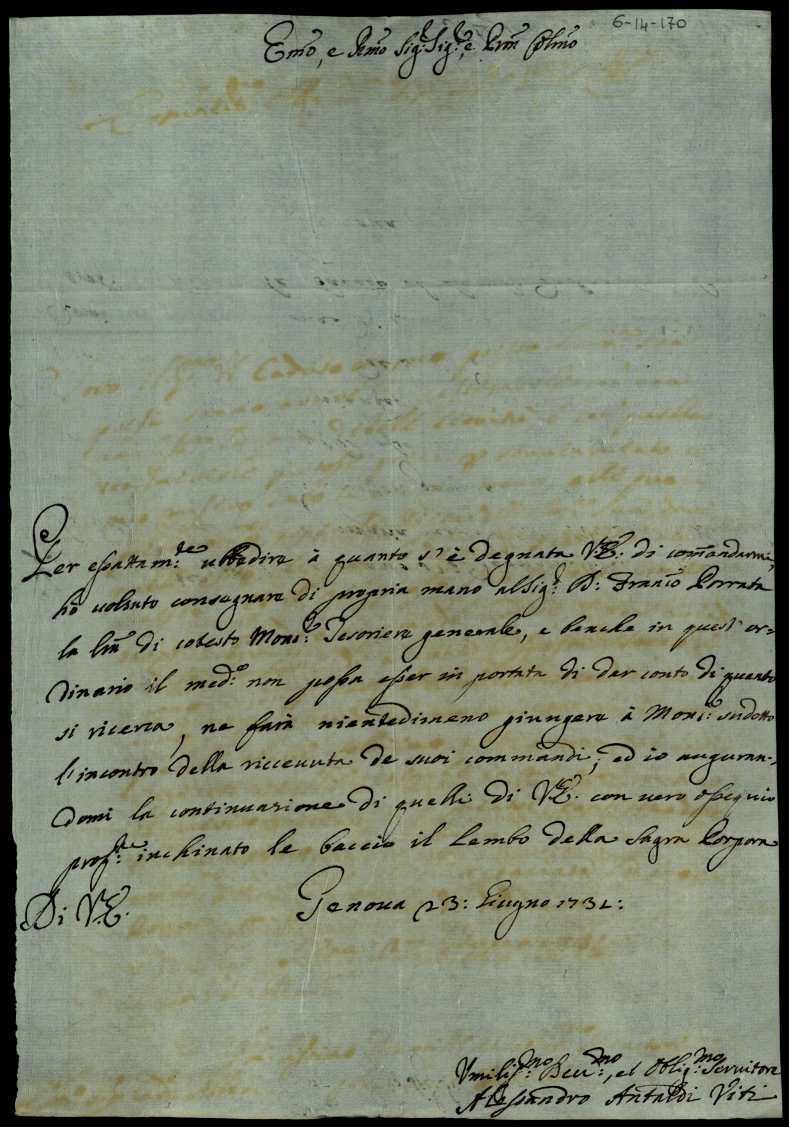 6-14-170
Emo, e Rmo Sig.r Sig.r, e Prõn Colmo
Per esattam.te ubbedire à quanto s'è degnata V.E. di comandarmi,
hò voluto consegnare di propria mano al Sig.r D: Franco Porrata
la lrã di cotesto Mons.r Tesoriere generale, e benche in quest'or-
dinario il med.o non possa esser in portata di dar conto di quanto
si ricerca, ne farà nientedimeno giungere à Mons.r sudetto
l'incontro della riccevuta de suoi commandi; ed io auguran-
domi la continuazione di quelli di V.E. con vero ossequio
prof.te inchinato le baccio il Lembo della Sagra Porpora
Di V.E. Genova 23: Giugno 1731:
Umiliss.mo Dev.mo, et Oblig.mo Servitore
Alessandro Antaldi Viti